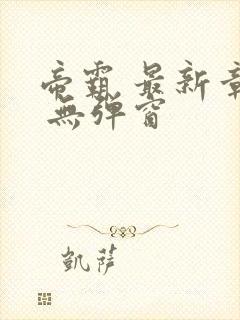 帝霸 最新章
無弹窗
凱薩